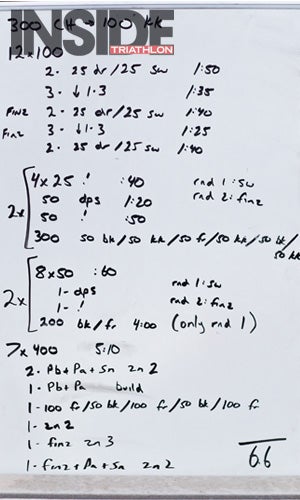 300 CH → 100 KK
INSIDE
TRIATHLON
12x100
2- 25 dr/25 sw 1:50
3- ↓1-3 1:35
Finz 2- 25 dr/25 sw 1:40
Finz 3- ↓1-3 1:25
2- 25 dr/25 sw 1:40
2x
4x25 ! :40 rnd 1: sw
50 dps 1:20 rnd 2: finz
50 ! :50
300 50 bk/50 kk/50 fr/50 kk/50 bk/
50 kk
2x
8x50 :60
1- dps rnd 1: sw
1- ! rnd 2: finz
200 bk/fr 4:00 (only rnd 1)
7x400 5:10
2- Pb+Pa+Sn 2n2
1- Pb+Pa build
1- 100 fr/50 bk/100 fr/50 bk/100 fr
1- 2n2
1- finz 2n3
1- finz+Pa+Sn 2n2
6.6